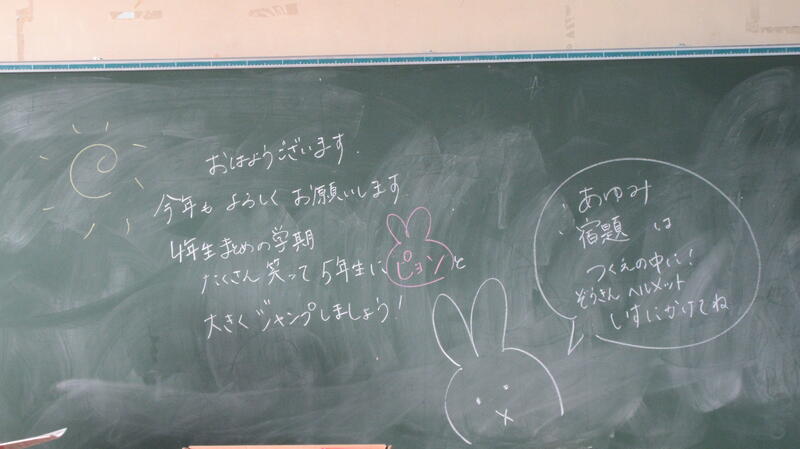 おはようございます.
今年も よろしく お願いします
4年生まとめの学期
たくさん 笑って 5年生に ピョンと
大きく ジャンプしましょう!
あゆみ
宿題 は
つくえの中に!
ぞうきん ヘルメット
いすにかけてね